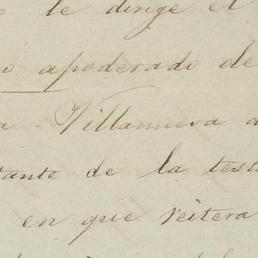 le dirige el
apoderado de
Villanueva
tante de la test
en que reitera